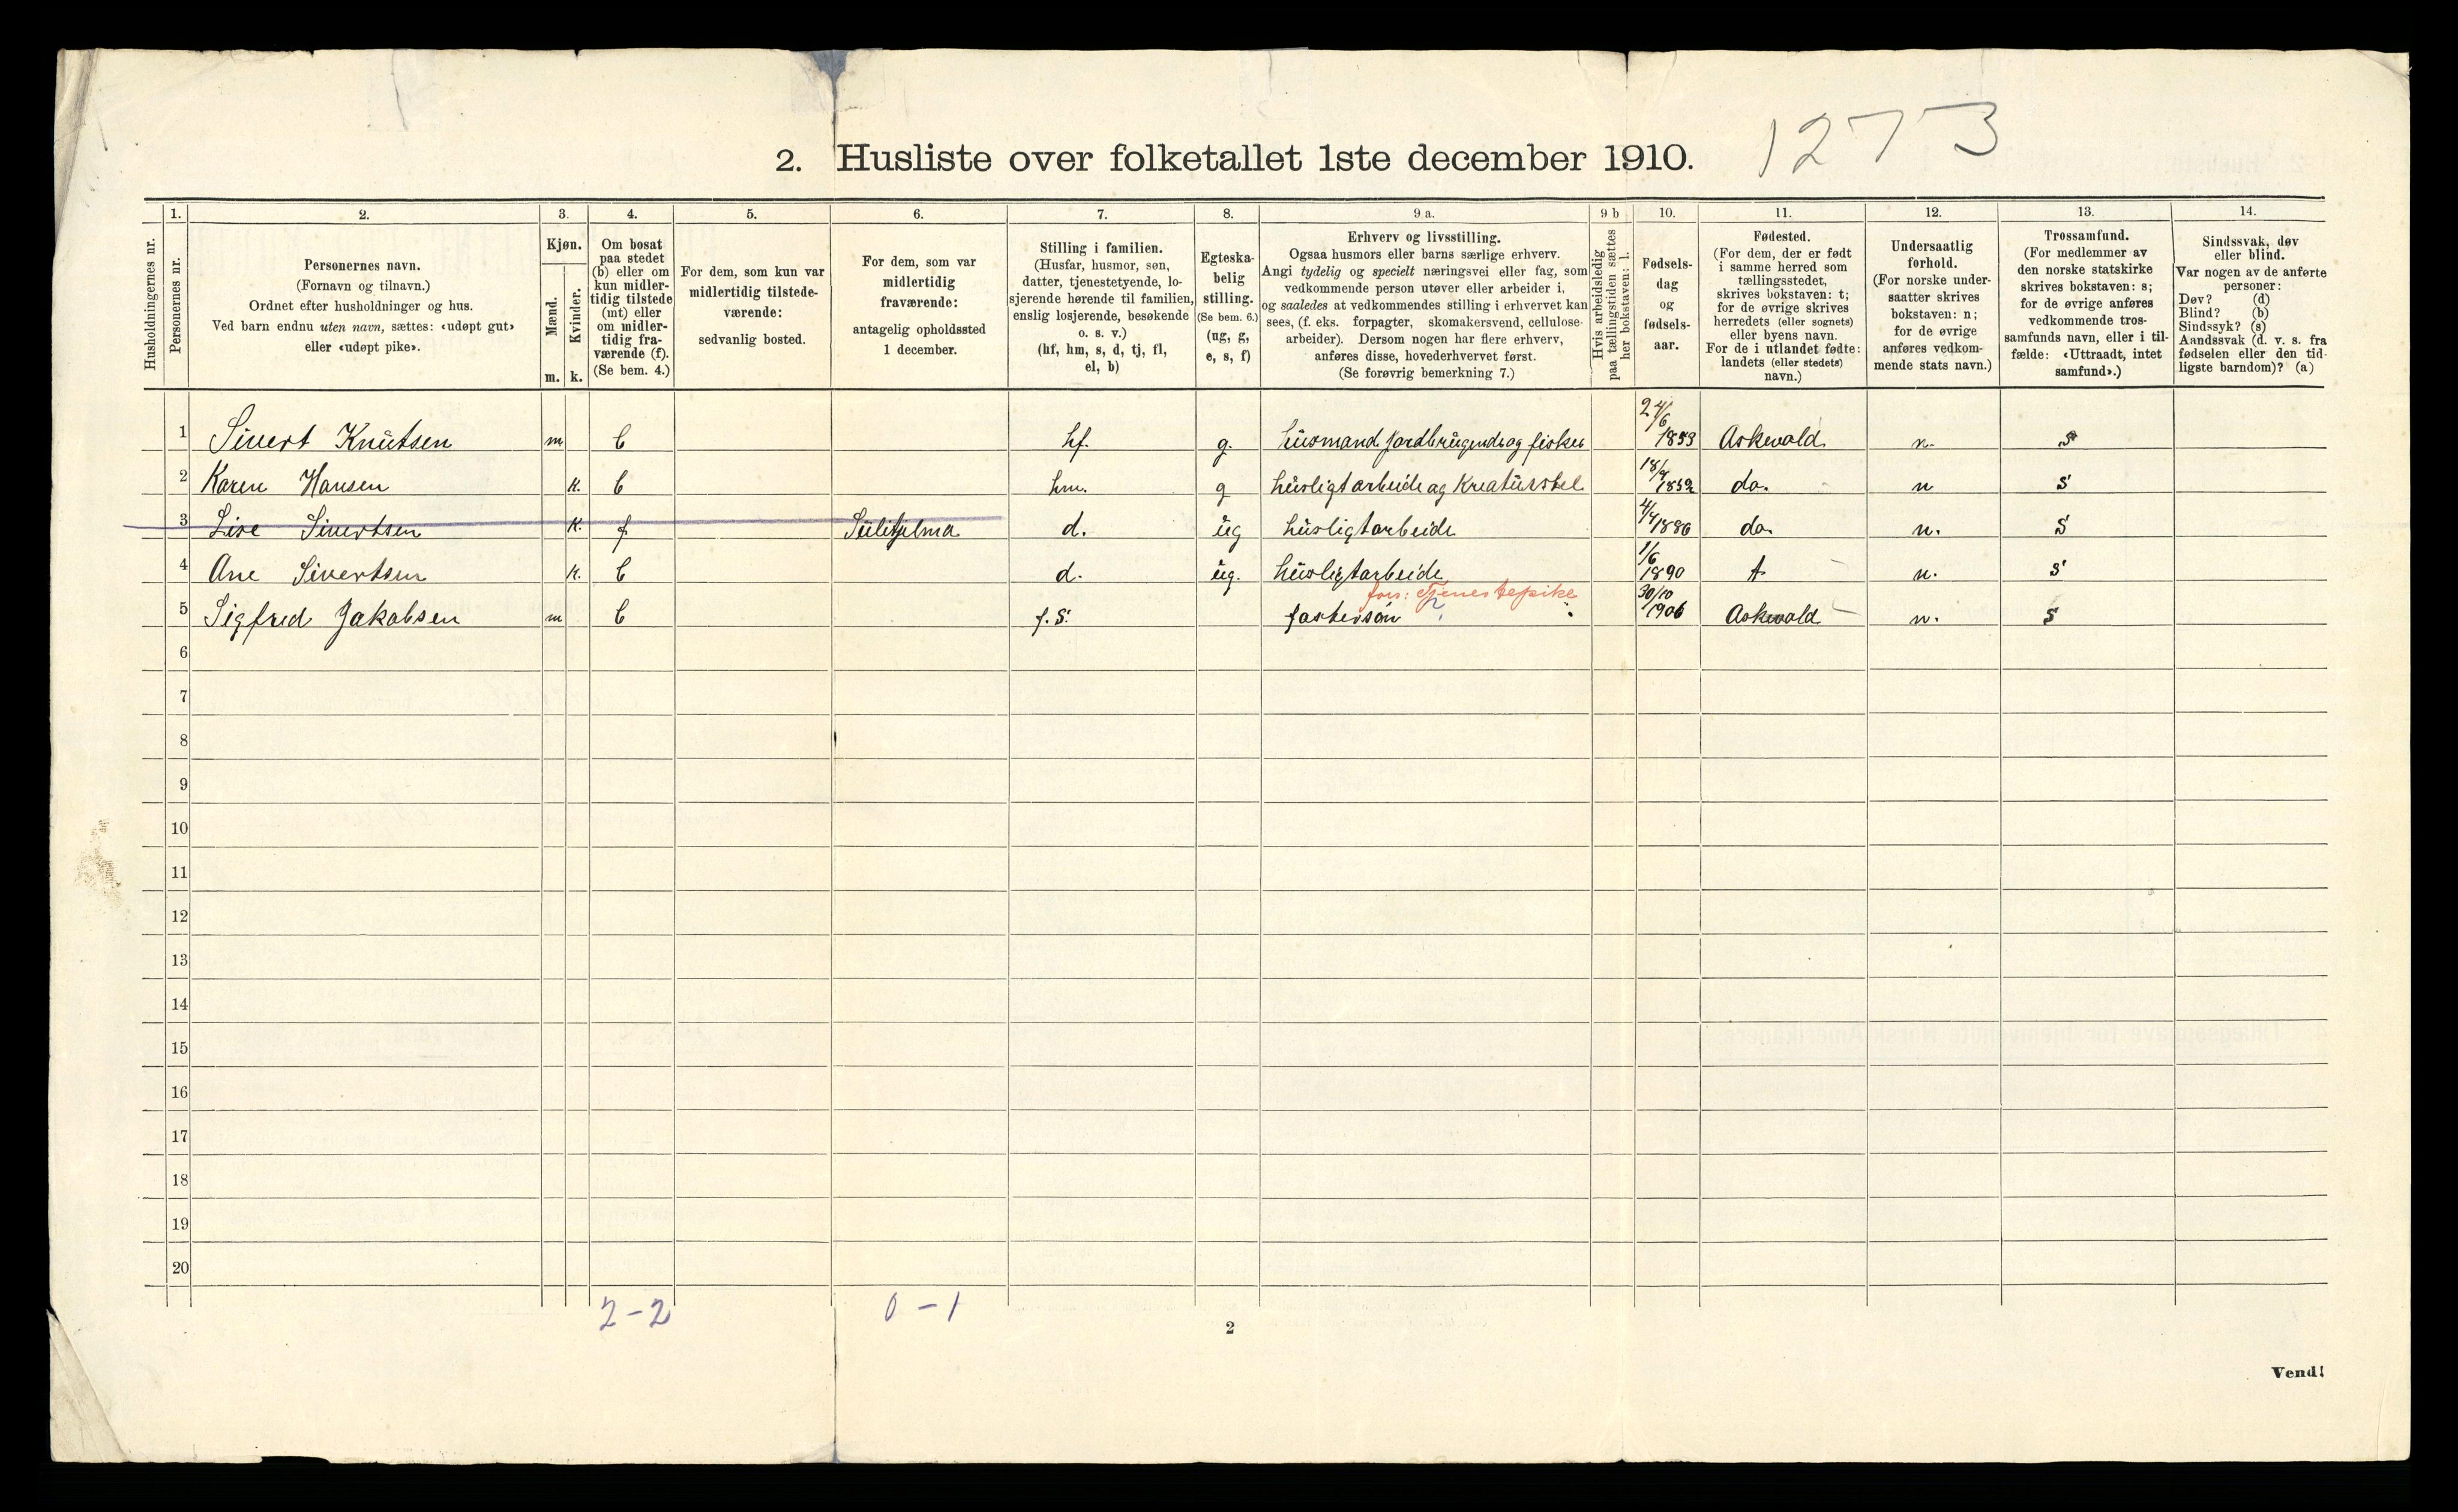 1273
2. Husliste over folketallet 1ste december 1910.
1. 2. 3. 4. 5. 6. 7. 8. 9 a. 9 b 10. 11. 12. 13. 14.
Husholdningernes nr.
Personernes nr.
Personernes navn.
(Fornavn og tilnavn.)
Ordnet efter husholdninger og hus.
Ved barn endnu uten navn, sættes: «udøpt gut»
eller «udøpt pike».
Kjøn.
Mænd.
Kvinder.
m. k.
Om bosat
paa stedet
(b) eller om
kun midler-
tidig tilstede
(mt) eller
om midler-
tidig fra-
værende (f).
(Se bem. 4.)
For dem, som kun var
midlertidig tilstede-
værende:
sedvanlig bosted.
For dem, som var
midlertidig
fraværende:
antagelig opholdssted
1 december.
Stilling i familien.
(Husfar, husmor, søn,
datter, tjenestetyende, lo-
sjerende hørende til familien,
enslig losjerende, besøkende
o. s. v.)
(hf, hm, s, d, tj, fl,
el, b)
Egteska-
belig
stilling.
(Se bem. 6.)
(ug, g,
e, s, f)
Erhverv og livsstilling.
Ogsaa husmors eller barns særlige erhverv.
Angi tydelig og specielt næringsvei eller fag, som
vedkommende person utøver eller arbeider i,
og saaledes at vedkommendes stilling i erhvervet kan
sees, (f. eks. forpagter, skomakersvend, cellulose-
arbeider). Dersom nogen har flere erhverv,
anføres disse, hovederhvervet først.
(Se forøvrig bemerkning 7.)
Hvis arbeidsledig
paa tællingstiden sættes
her bokstaven: l.
Fødsels-
dag
og
fødsels-
aar.
Fødested.
(For dem, der er født
i samme herred som
tællingsstedet,
skrives bokstaven: t;
for de øvrige skrives
herredets (eller sognets)
eller byens navn.
For de i utlandet fødte:
landets (eller stedets)
navn.)
Undersaatlig
forhold.
(For norske under-
saatter skrives
bokstaven: n;
for de øvrige
anføres vedkom-
mende stats navn.)
Trossamfund.
(For medlemmer av
den norske statskirke
skrives bokstaven: s;
for de øvrige anføres
vedkommende tros-
samfunds navn, eller i til-
fælde: «Uttraadt, intet
samfund».)
Sindssvak, døv
eller blind.
Var nogen av de anførte
personer:
Døv? (d)
Blind? (b)
Sindssyk? (s)
Aandssvak (d. v. s. fra
fødselen eller den tid-
ligste barndom)? (a)
1 Sivert Knutsen m b hf. g. husmand jordbrugende og fisker 24/6 1853 Askvold n. s
2 Karen Hansen k. b hm. g husligt arbeide og Kreaturstel 18/9 1852 do. n s
3 Lise Sivertsen k. f Sulitjelma d. ug husligt arbeide 4/4 1886 do. n. s
4 Ane Sivertsen k. b d. ug. husligt arbeide 1/6 1890 t n. s
fors: Tjenestepike
5 Sigfred Jakobsen m b f. s. fostersøn 30/10 1906 Askvold n. s
6
7
8
9
10
11
12
13
14
15
16
17
18
19
20
2-2 0-1
2
Vend!